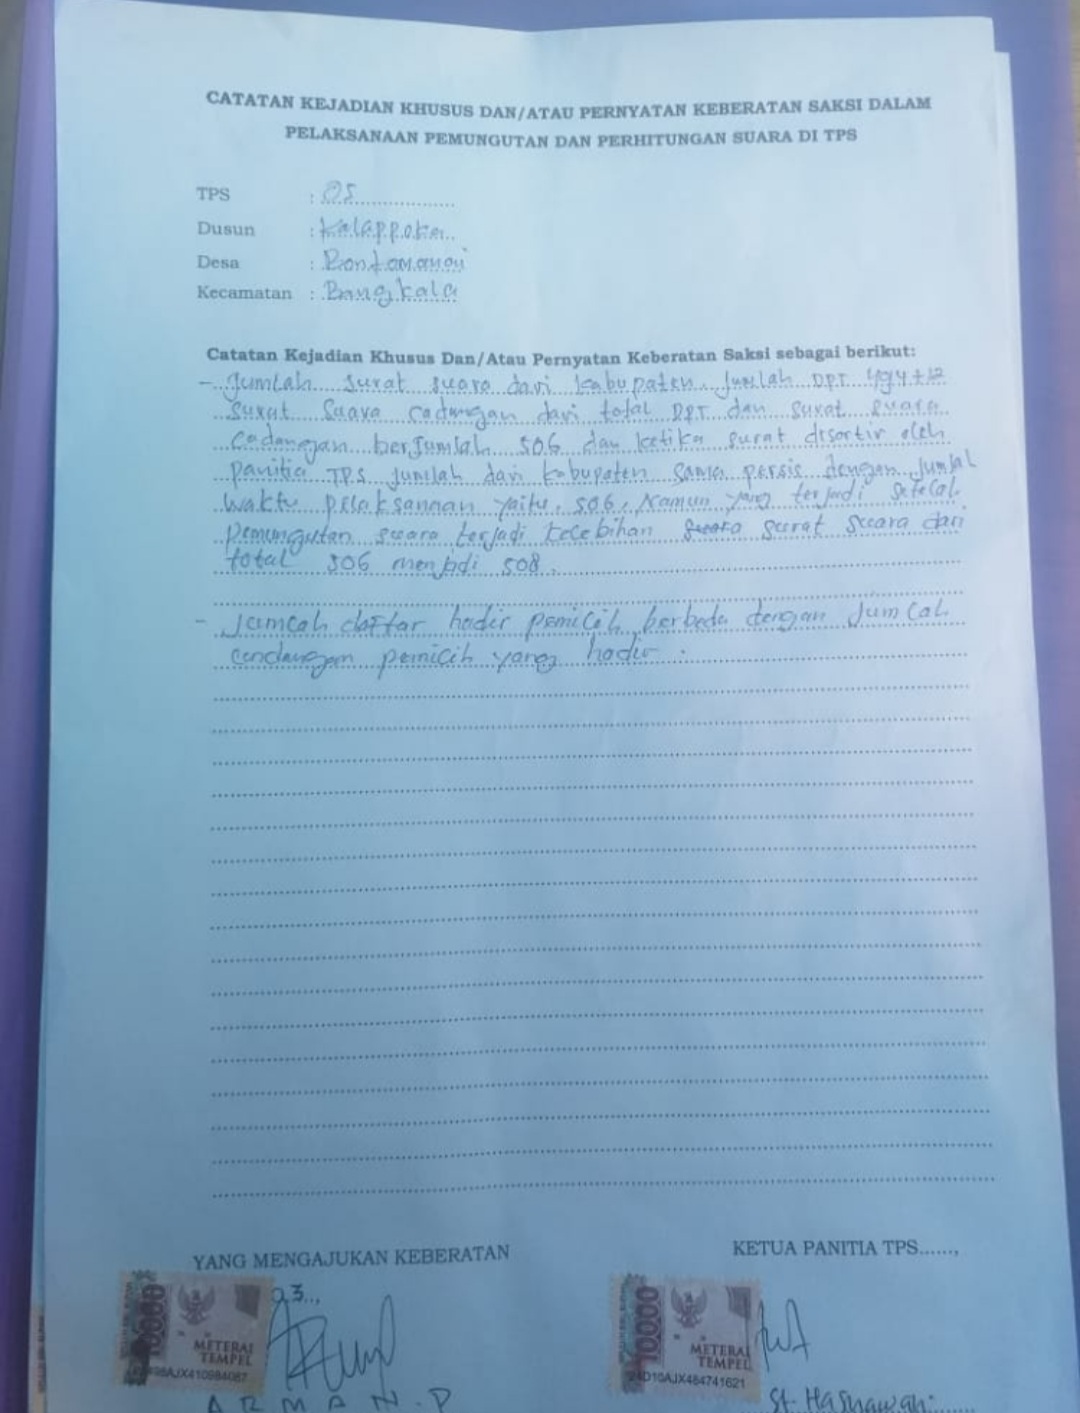 CATATAN KEJADIAN KHUSUS DAN/ATAU PERNYATAN KEBERATAN SAKSI DALAM
PELAKSANAAN PEMUNGUTAN DAN PERHITUNGAN SUARA DI TPS
TPS : 05
Dusun : Kalappoka
Desa : Bontamanai
Kecamatan : Bangkala
Catatan Kejadian Khusus Dan/Atau Pernyatan Keberatan Saksi sebagai berikut:
- Jumlah surat suara dari kabupaten Jumlah DPT 494+12
Surat Suara cadangan dari total DPT dan surat suara
cadangan berjumlah 506 dan ketika surat disortir oleh
panitia TPS jumlah dari kabupaten sama persis dengan jumlal
waktu pelaksanaan yaitu 506, Namun yang terjadi setelal
pemungutan suara terjadi kelebihan surat suara dari
total 506 menjadi 508.
- Jumlah daftar hadir pemilih berbeda dengan Jumlah
undangan pemilih yang hadir.
YANG MENGAJUKAN KEBERATAN
KETUA PANITIA TPS......,
03..,
10000
METERAI
TEMPEL
10000
METERAI
TEMPEL
D10AJX484741621
ARMAN.P
St. Hasnawati